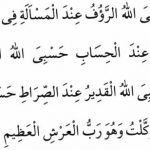 ىَ اللهُ الرَّؤُفُ عِنْدَ الْمَسْأَلَةِ فِى
عِنْدَ الْحِسَابِ حَسْبِىَ اللهُ
ىَ اللهُ الْقَدِيرُ عِنْدَ الصِّرَاطِ حَسْ
كَّلْتُ وَهُوَ رَبُّ الْعَرْشِ الْعَظِيمِ